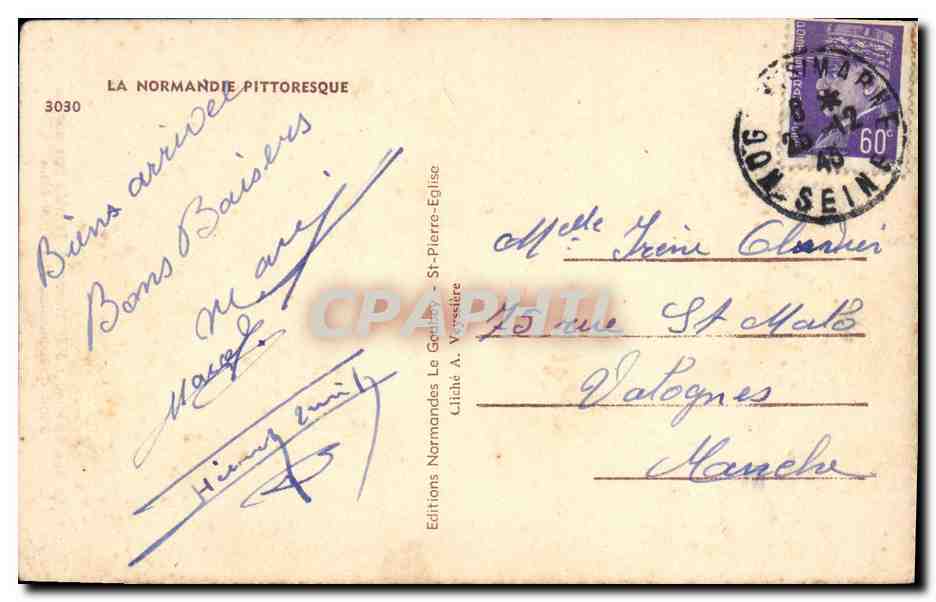 LA NORMANDIE PITTORESQUE
3030
Biens arrivée
Bons Baisers
Marie
Marcel
Editions Normandes Le Goubey - St-Pierre-Eglise
Cliché A. Veyssière
CPAPHIL
60c
SEIN
Melle Irène
75 rue St Malo
Valognes
Manche